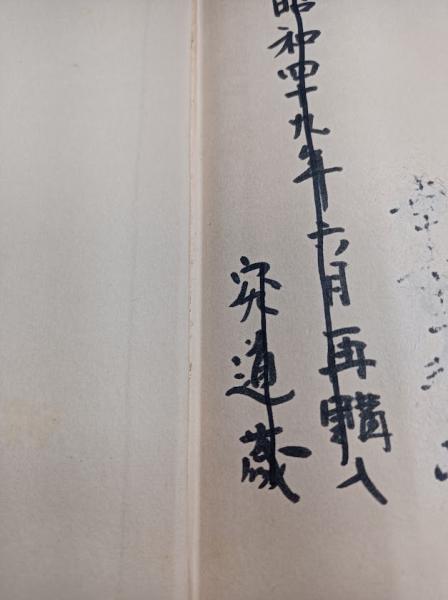 昭和四十九年六月再購入
宍道蔵